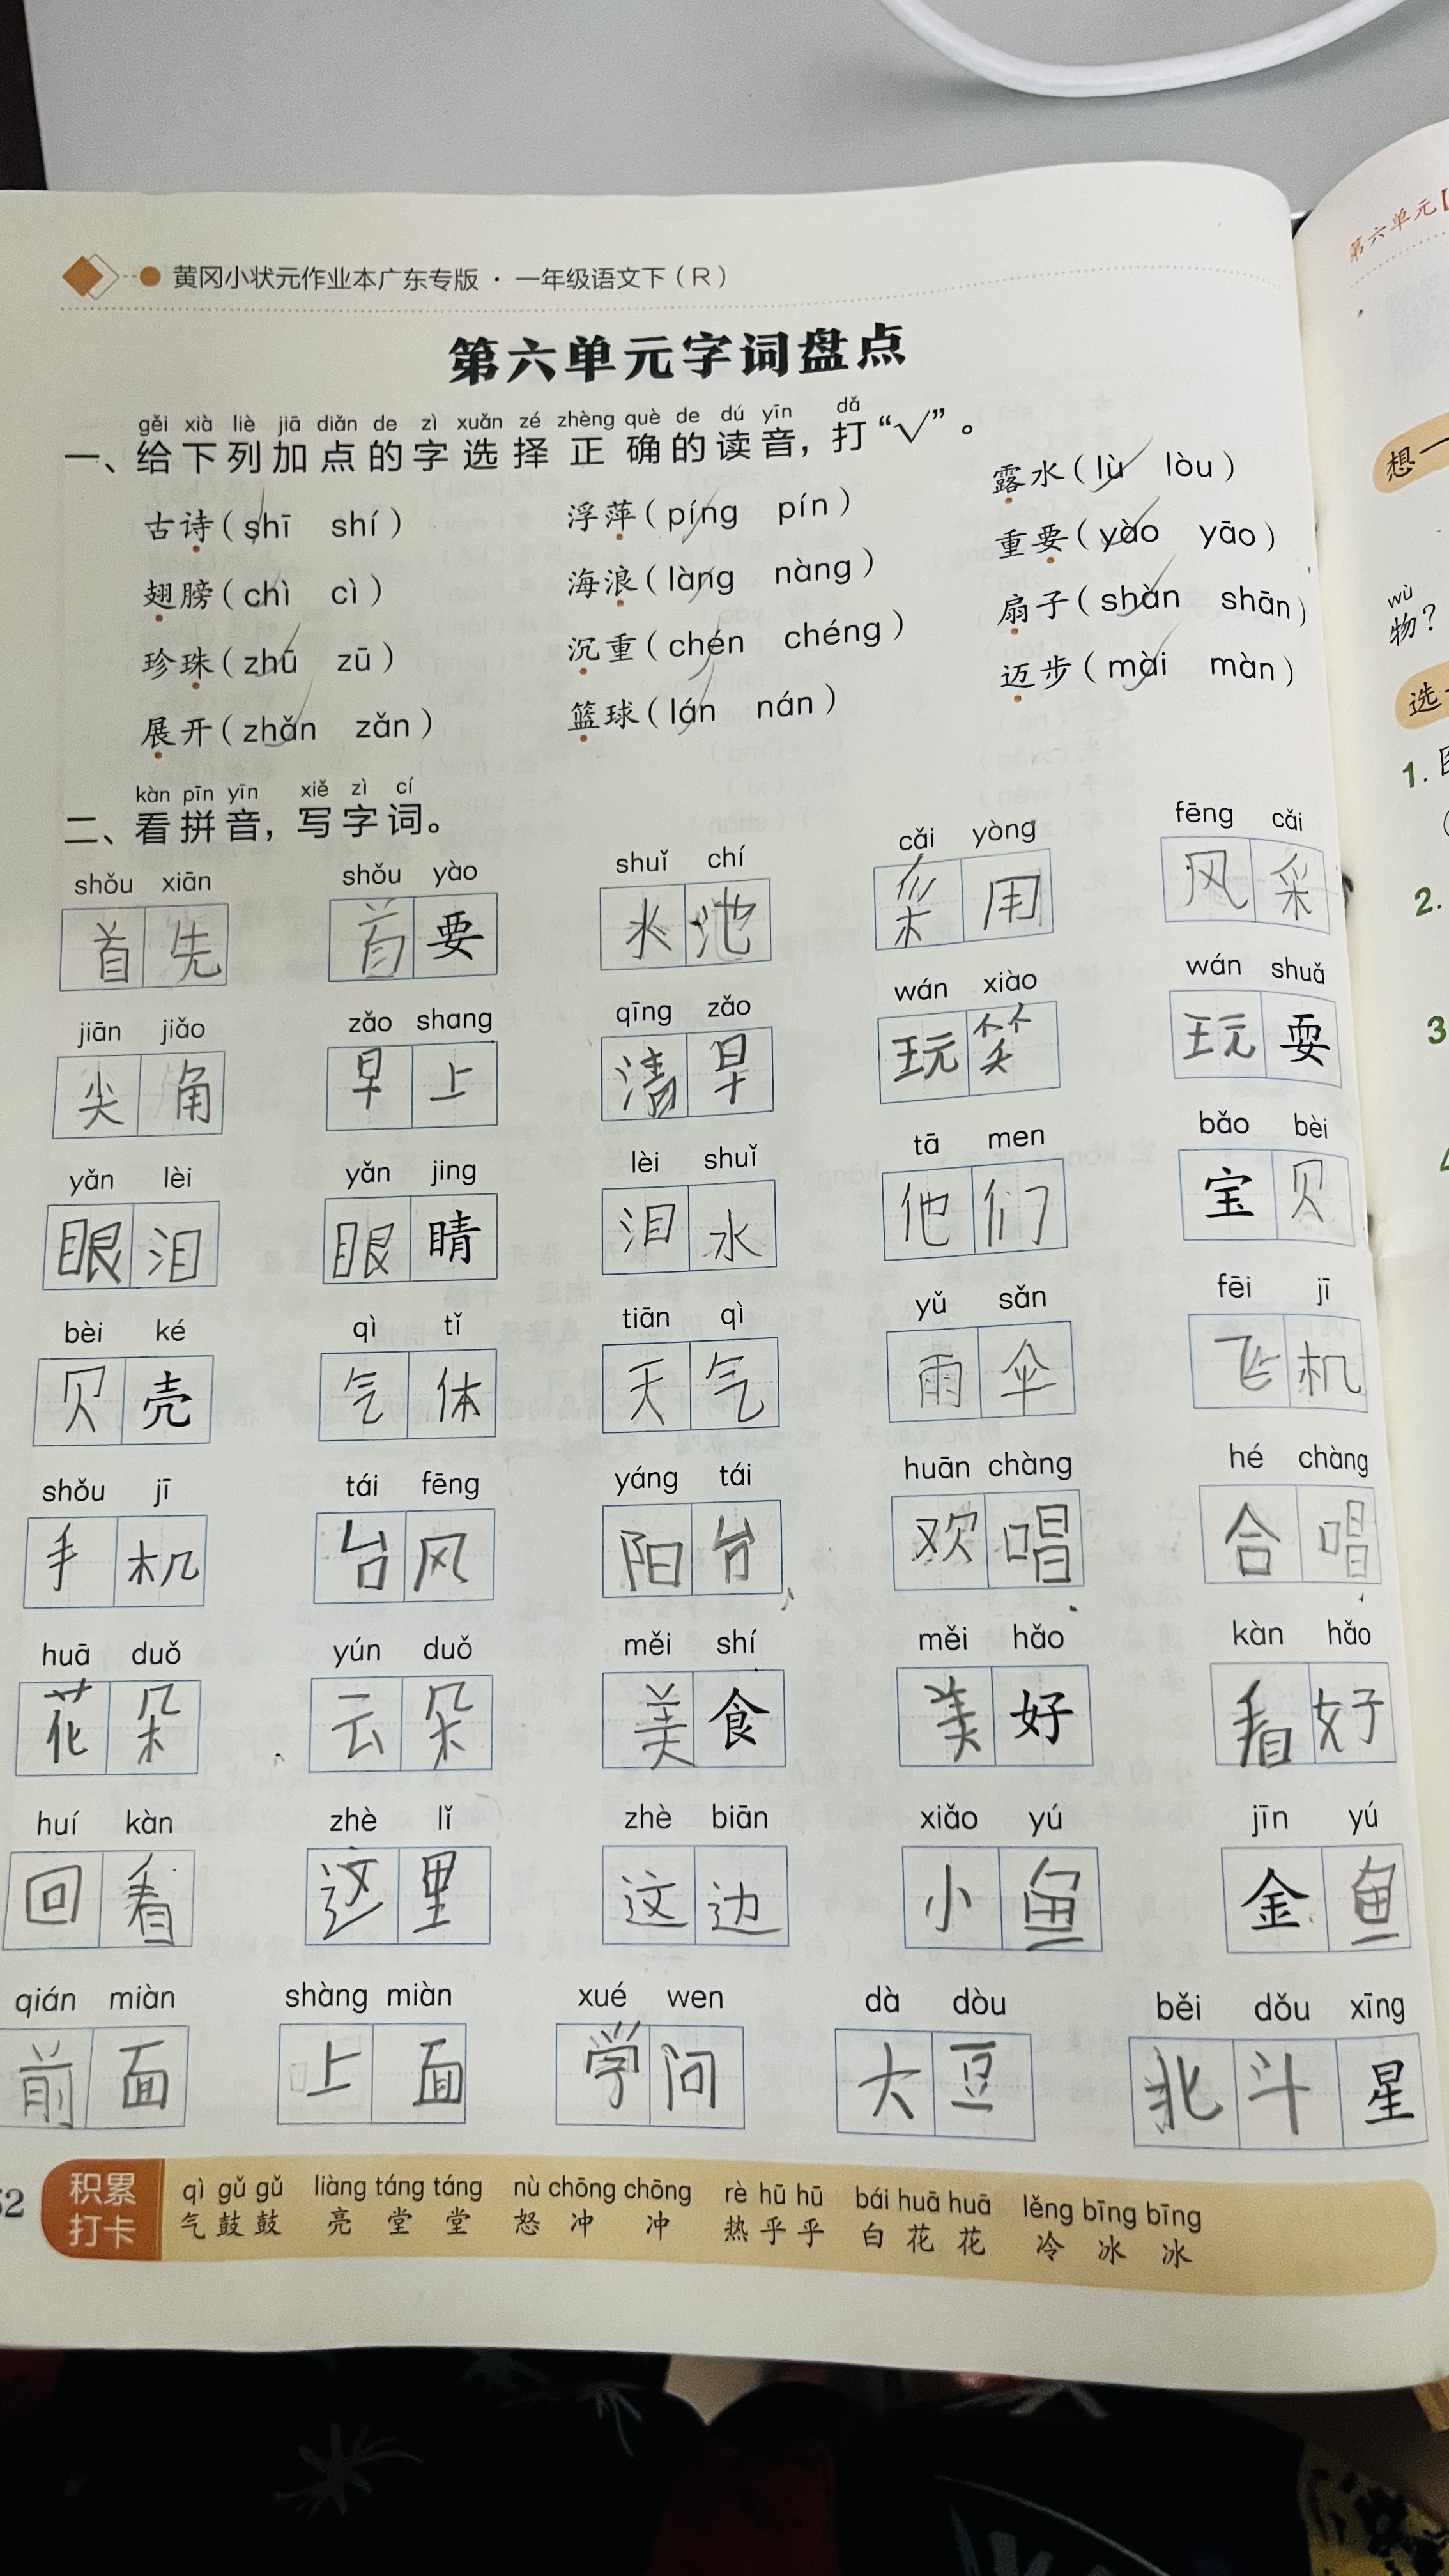 黄冈小状元作业本广东专版 · 一年级语文下（R）
第六单元字词盘点
gěi xià liè jiā diǎn de zì xuǎn zé zhèng què de dú yīn dǎ
一、给下列加点的字选择正确的读音，打“√”。
古诗（shī shí） 浮萍（píng pín） 露水（lù lòu）
翅膀（chì cì） 海浪（làng nàng） 重要（yào yāo）
珍珠（zhū zū） 沉重（chén chéng） 扇子（shàn shān）
展开（zhǎn zǎn） 篮球（lán nán） 迈步（mài màn）
kàn pīn yīn xiě zì cí
二、看拼音，写字词。
shǒu xiān shǒu yào shuǐ chí cǎi yòng fēng cǎi
首先 首要 水池 采用 风采
jiān jiǎo zǎo shang qīng zǎo wán xiào wán shuǎ
尖角 早上 清早 玩笑 玩耍
yǎn lèi yǎn jing lèi shuǐ tā men bǎo bèi
眼泪 眼睛 泪水 他们 宝贝
bèi ké qì tǐ tiān qì yǔ sǎn fēi jī
贝壳 气体 天气 雨伞 飞机
shǒu jī tái fēng yáng tái huān chàng hé chàng
手机 台风 阳台 欢唱 合唱
huā duǒ yún duǒ měi shí měi hǎo kàn hǎo
花朵 云朵 美食 美好 看好
huí kàn zhè lǐ zhè biān xiǎo yú jīn yú
回看 这里 这边 小鱼 金鱼
qián miàn shàng miàn xué wen dà dòu běi dǒu xīng
前面 上面 学问 大豆 北斗星
积累
打卡
qì gǔ gǔ liàng táng táng nù chōng chōng rè hū hū bái huā huā lěng bīng bīng
气鼓鼓 亮堂堂 怒冲冲 热乎乎 白花花 冷冰冰
第六单元
想一
wù
物？
选
1.
2.
3